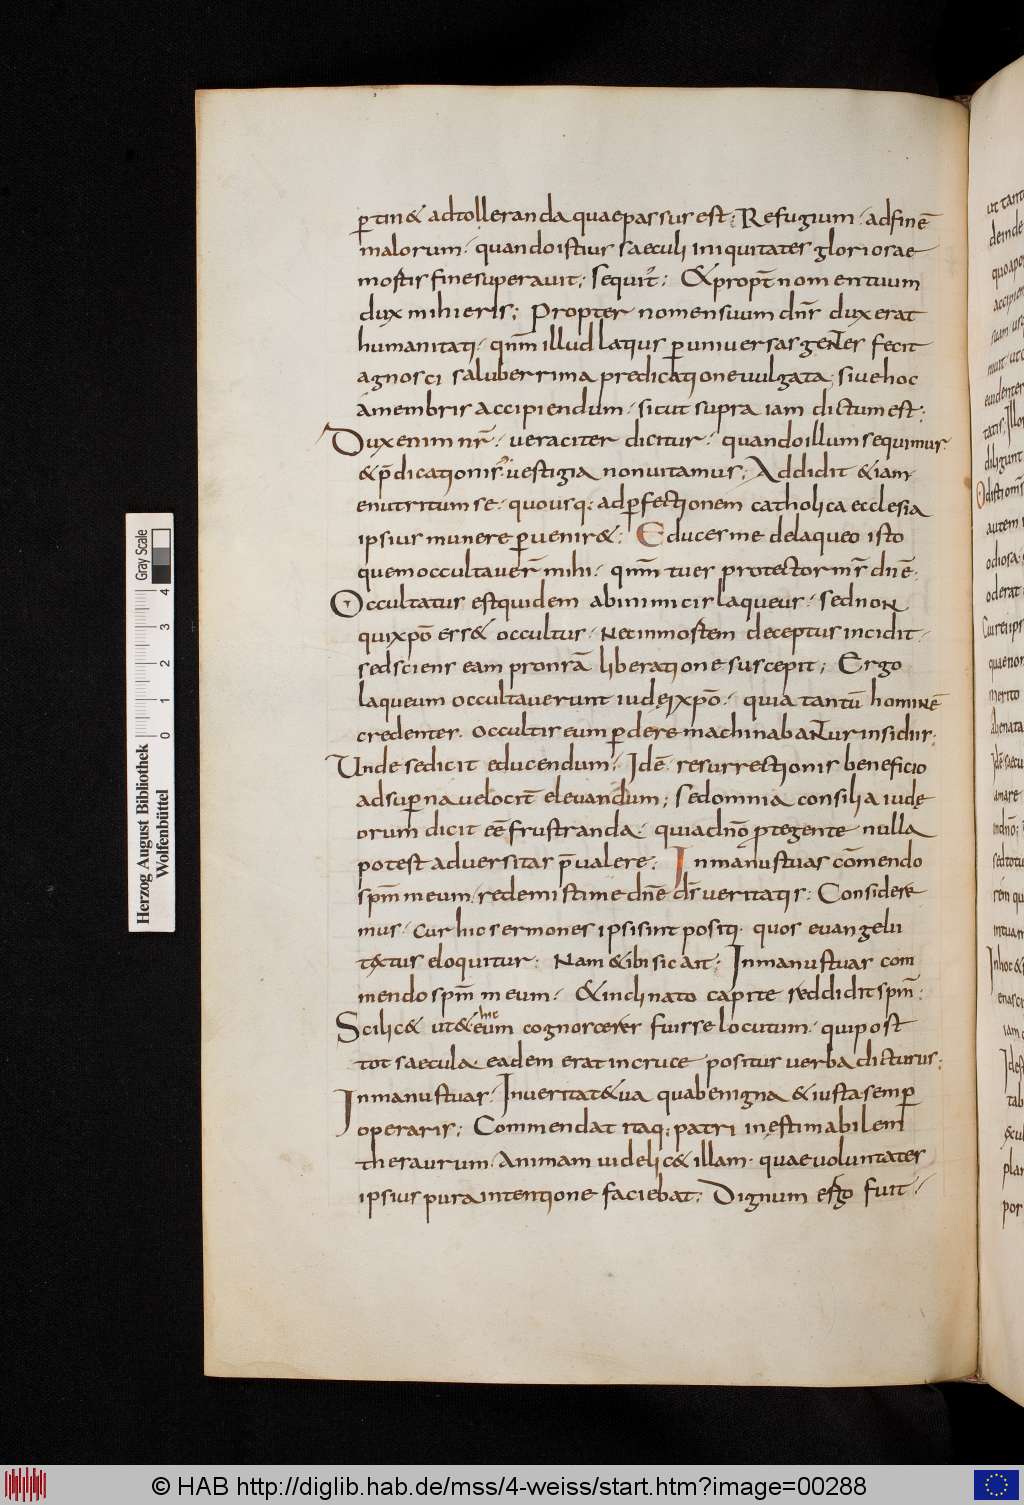 ꝑtin& adtolleranda quaepassus est; Refugium · adfinē
malorum · quando istius saeculi iniquitates gloriosae
mostis fine superauit; sequit̄; & propt̄ nomen tuum
dux mihi eris; Propter nomen suum dnſ dux erat
humanitati · qnm̄ illud latius ꝑ uniuersas gentes fecit
agnosci saluberrima predicatione uulgata; siue hoc
a membris accipiendum · sicut supra iam dictum est;
Dux enim nr̄ · ueraciter dicitur · quando illum sequimur
& p̄dicationis uestigia non uitamus; Addidit & iam
enutritum se · quousq; ad ꝑfectionem catholica ecclesia
ipsius munere ꝑuenir&; Educes me de laqueo isto
quem occultauer̄ mihi · qnm̄ tu es protector mſ dnē
Occultatus est quidem ab inimicis laqueus · sed non
qui xpō ess& occultus · Nec in mostem deceptus incidit ·
sed sciens eam pro nrā liberatione suscepit; Ergo
laqueum occultauerunt iudęi xpō · quia tantū hominē
credentes · occultis eum ꝑdere machinabantur insidiis;
Unde se dicit educendum · Idē resurrectionis beneficio
ad suꝑna uelocit̄ eleuandum; sed omnia consilia iudę
orum dicit eē frustranda · quia dnō ptegente nulla
potest aduersitas p̄ualere; In manus tuas cōmendo
spm̄ meum · redemisti me dnē dſ ueritatis; Considere
mus · cur hic sermones ipsi sint positi · quos euangelii
textus eloquitur; Nam & ibi sic ait; In manus tuas com
mendo spm̄ meum · & inclinato capite reddidit spm̄;
hic
Scilic& ut & eum cognosceres fuisse locutum · qui post
tot saecula · eadem erat in cruce positus uerba dicturus;
In manus tuas · In ueritate tua qua benigna & iusta semꝑ
operaris; Commendat itaq; patri inęstimabilem
thesaurum · Animam uidelic& illam · quae uoluntates
ipsius pura intentione faciebat; Dignum ergo fuit ·
Herzog August Bibliothek
Wolfenbüttel
0 1 2 3 4
Gray Scale
© HAB http://diglib.hab.de/mss/4-weiss/start.htm?image=00288